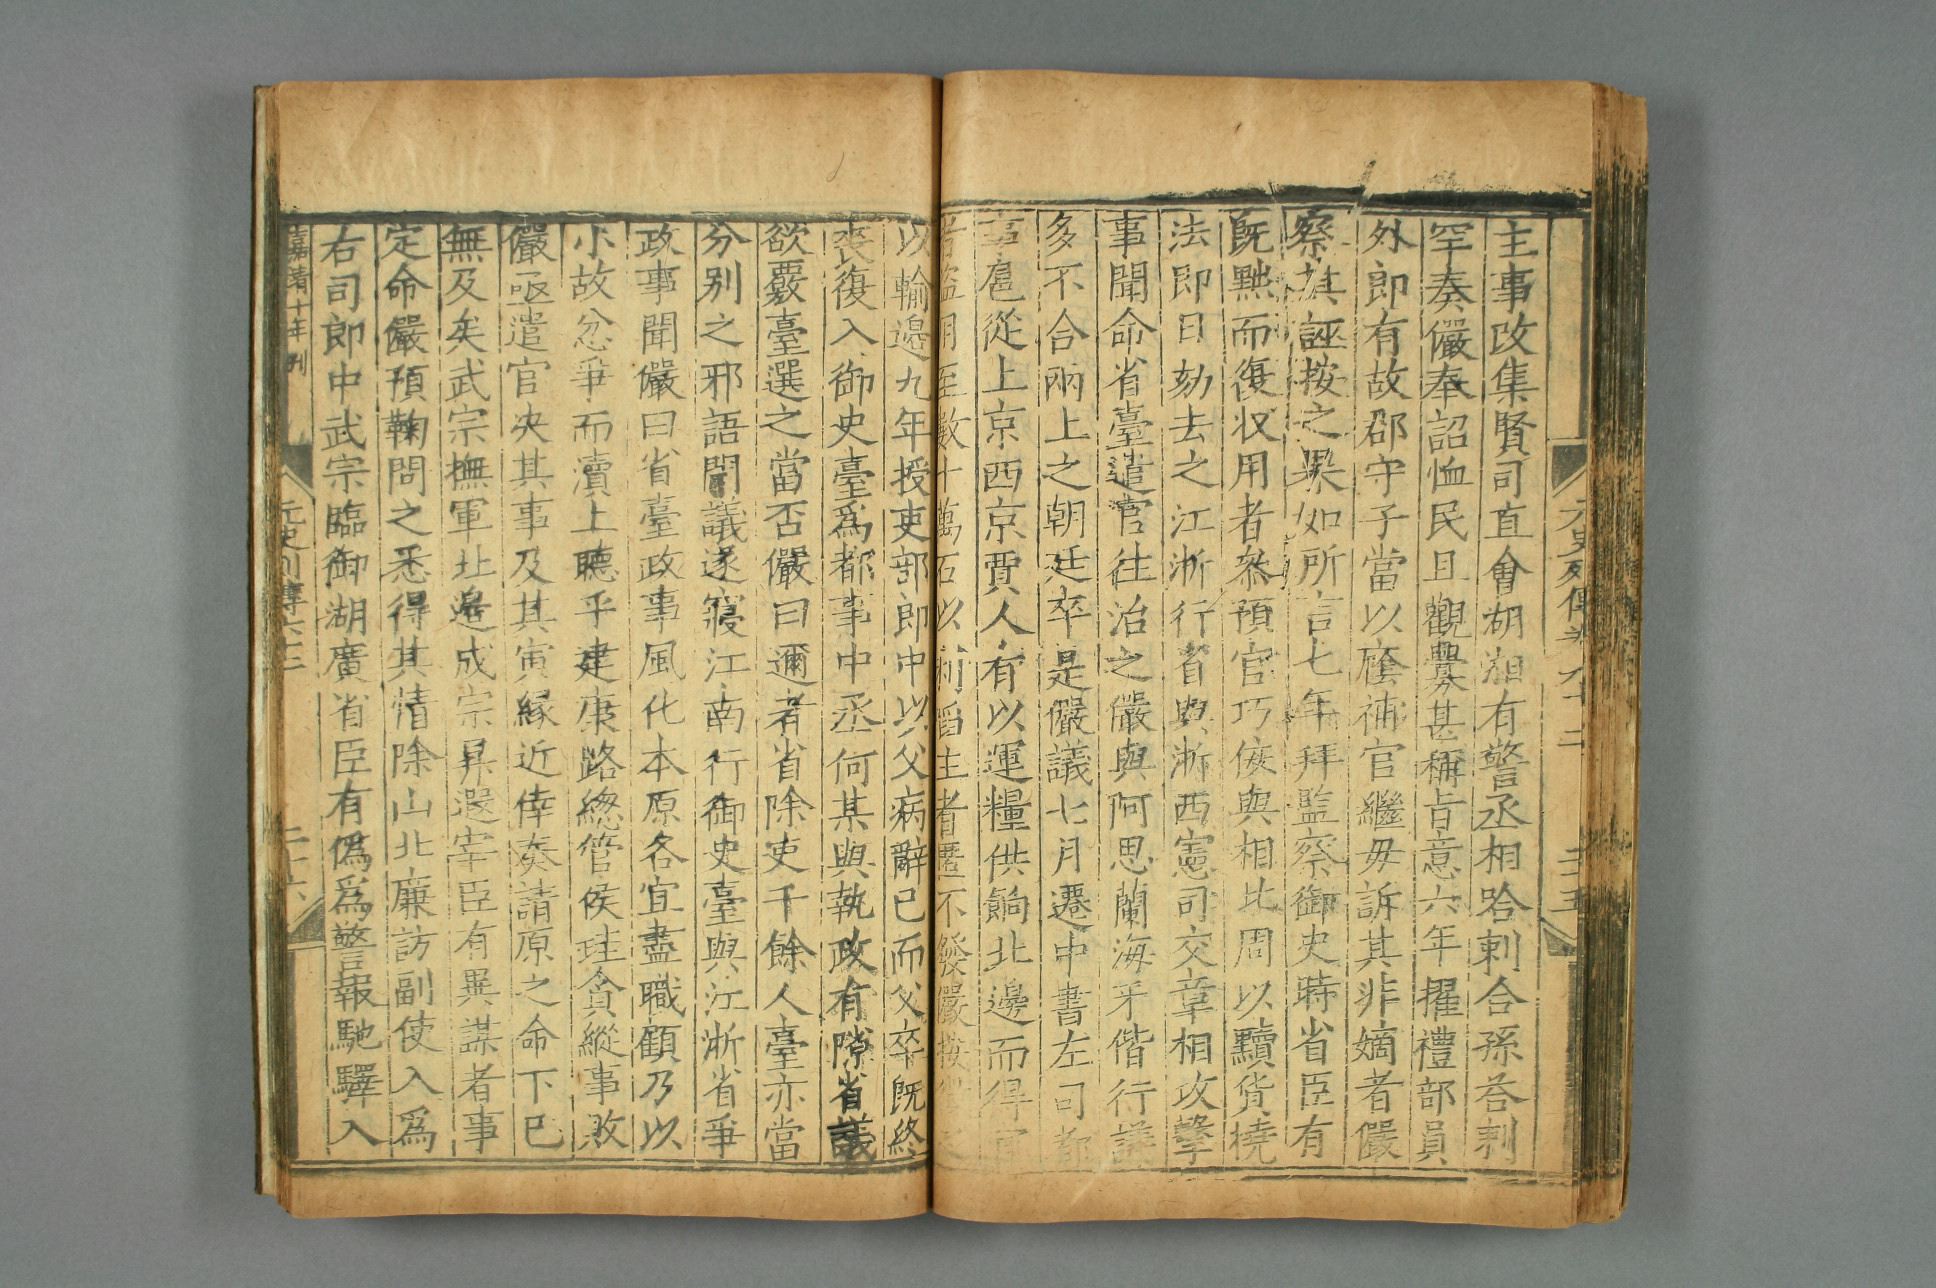 元史列傳 六十二 二十五
主事改集賢司直會胡湘有警丞相哈剌合孫荅剌
罕奏儼奉詔恤民且觀釁甚稱旨意六年擢禮部員
外郎有故郡守子當以廕補官繼毋訴其非嫡者儼
察其誣按之果如所言七年拜監察御史時省臣有
旣黜而復收用者叅預官巧佞與相比周以黷貨撓
法即日劾去之江浙行省與浙西憲司交章相攻擊
事聞命省臺遣官往治之儼與阿思蘭海牙偕行議
多不合兩上之朝廷卒是儼議七月遷中書左司都
事扈從上京西京賈人有以運糧供餉北邊而得官
者盜用至數十萬石以利啗主者匿不發儼按
以輸邊九年授吏部郎中以父病辭已而父卒旣終
喪復入御史臺爲都事中丞何某與執政有隙省議
欲覈臺選之當否儼曰邇者省除吏千餘人臺亦當
分別之邪語聞議遂寢江南行御史臺與江浙省爭
政事聞儼曰省臺政事風化本原各宜盡職顧乃以
小故忿爭而瀆上聽乎建康路緫管侯珪貪縱事敗
儼亟遣官决其事及其寅緣近倖奏請原之命下已
無及矣武宗撫軍北邊成宗昇遐宰臣有異謀者事
定命儼預鞠問之悉得其情除山北廉訪副使入爲
右司郎中武宗臨御湖廣省臣有僞爲警報馳驛入
嘉靖十年刋
元史列傳六十二 二十六